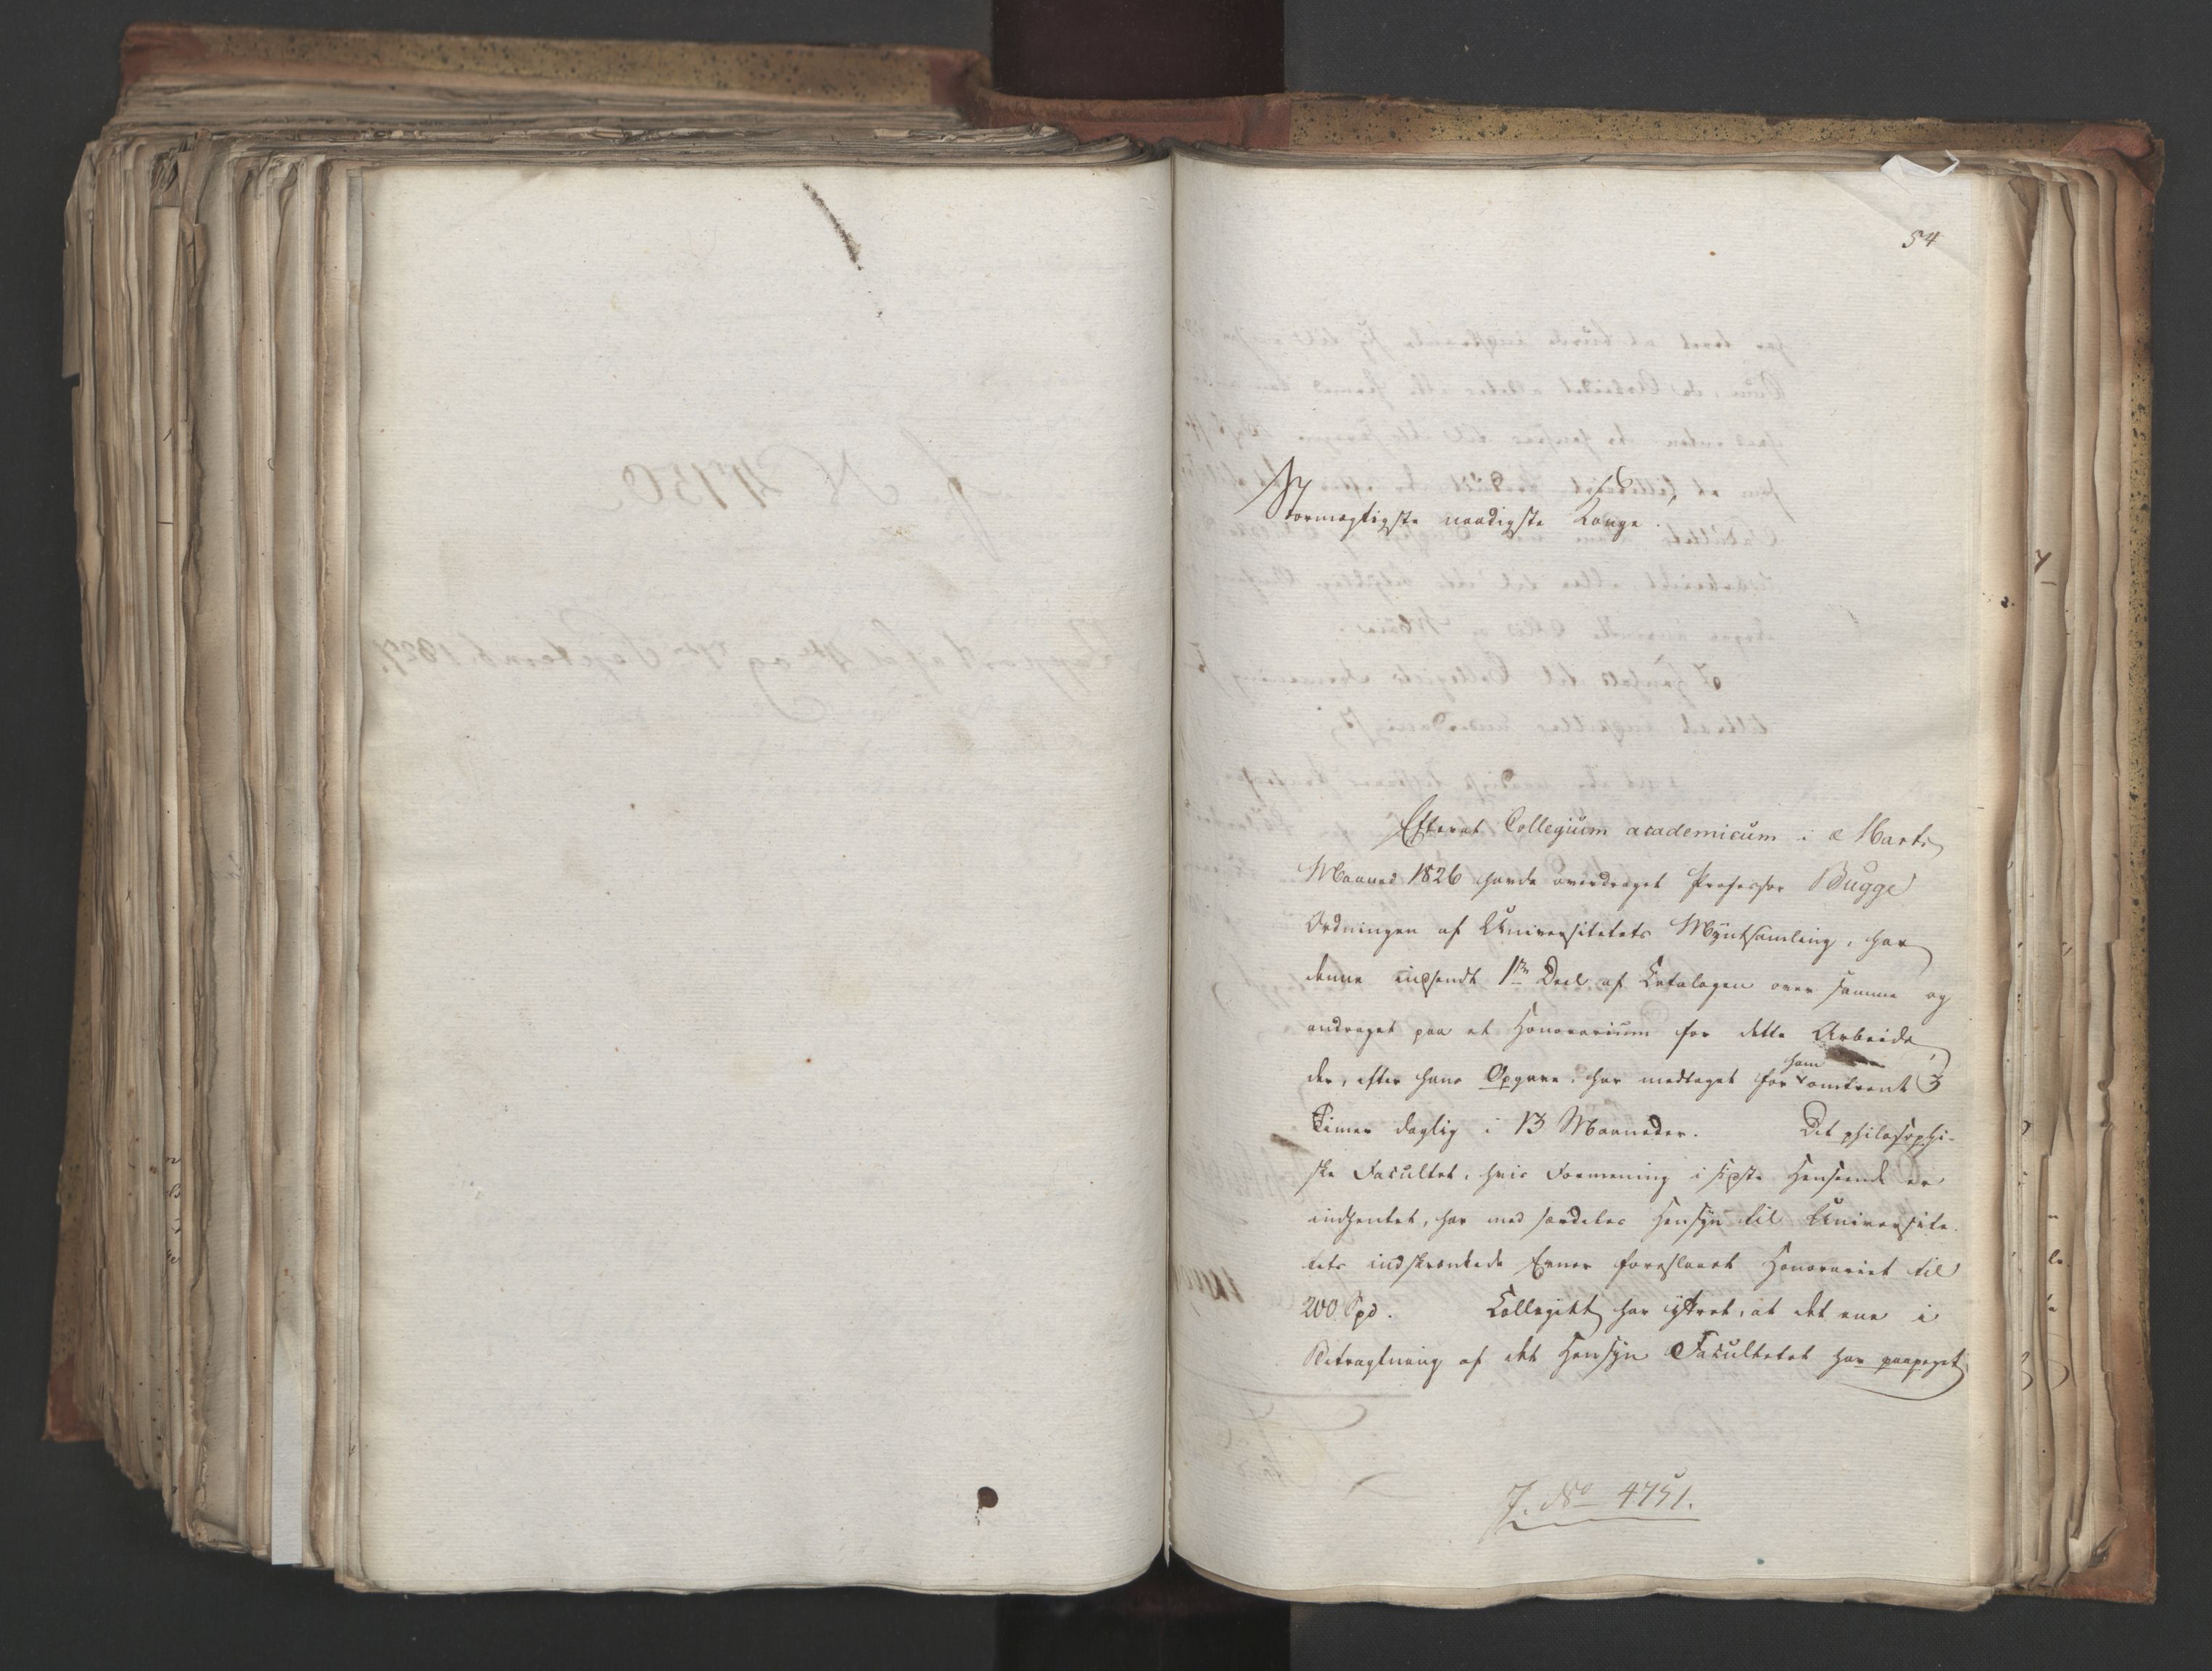 54
Stormægtigste naadigste Konge!
Efterat Collegium academicum i Marts
Maaned 1826 havde overdraget Professor Bugge
Ordningen af Universitetets Myntsamling, har
denne indsendt 1ste Deel af Catalogen over samme og
andraget paa et Honorarium for dette Arbeide,
ham
der, efter hans Opgave, har medtaget for omtrent 3
Timer daglig i 13 Maaneder. Det philosophi-
ske Facultet, hvis Formening i sidste Henseende er
indhentet, har med særdeles Hensyn til Universite-
tets indskrænkede Evner foreslaaet Honorariet til
200 Spd. Collegiet har yttret, at det ene i
Betragtning af det Hensyn Facultetet har paapeget
J. No 4751.